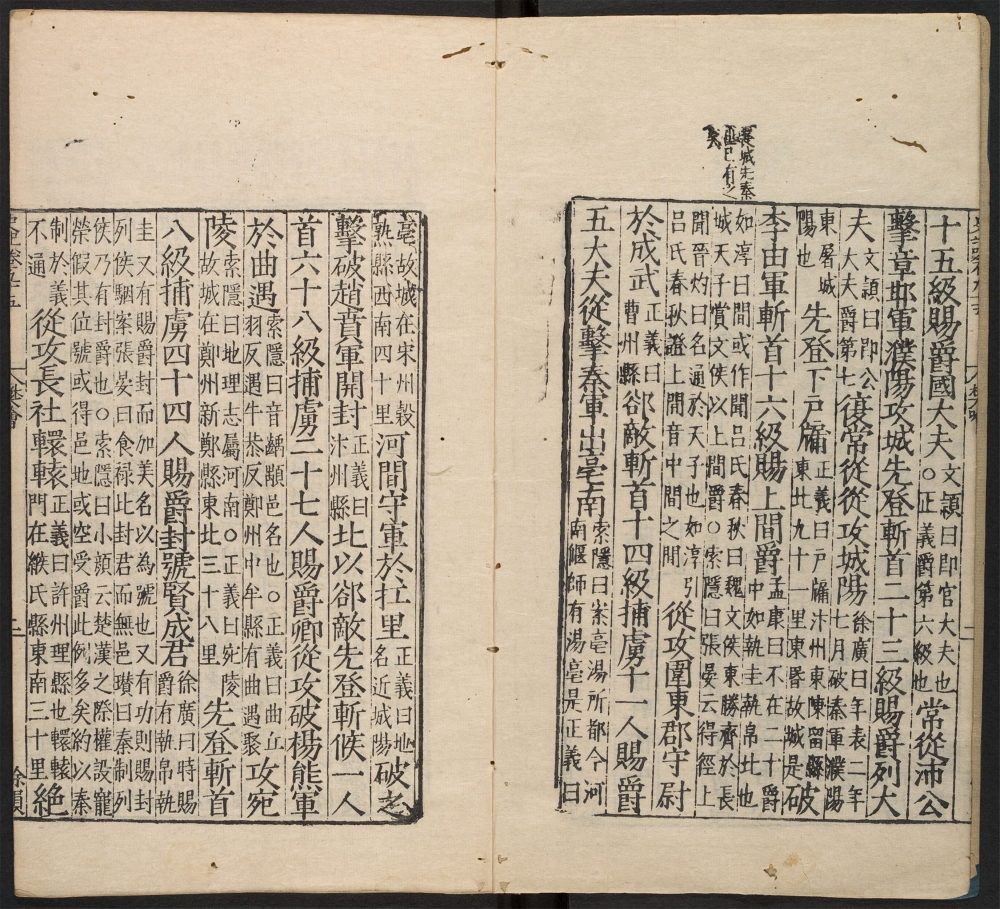 城先秦
已有之
矣
十五級賜爵國大夫文穎曰即官大夫也○正義爵第六級也常從沛公
擊章邯軍濮陽攻城先登斬首二十三級賜爵列大
夫文穎曰即公大夫爵第七復常從從攻城陽徐廣曰年表二年七月破秦軍濮陽
東屠城陽也先登下戶牖正義曰戶牖汴州東陳留縣東北九十一里東昬故城是破
李由軍斬首十六級賜上間爵孟康曰不在二十爵中如執圭執帛比也
如淳曰間或作聞呂氏春秋曰魏文侯東勝齊於長城天子賞文侯以上間爵○索隱曰張晏云得徑上
聞晉灼曰名通於天子也如淳引呂氏春秋證上間音中間之間從攻圍東郡守尉
於成武正義曰曹州縣郤敵斬首十四級捕虜十一人賜爵
五大夫從擊秦軍出亳南索隱曰案亳湯所都今河南偃師有湯亳是正義曰
亳故城在宋州穀熟縣西南四十里河間守軍於扛里正義曰地名近城陽破之
擊破趙賁軍開封正義曰汴州縣北以郤敵先登斬候一人
首六十八級捕虜二十七人賜爵卿從攻破楊熊軍
於曲遇索隱曰音齲顒邑名也○正義曰曲丘羽反遇牛恭反鄭州中牟縣有曲遇聚攻宛
陵索隱曰地理志屬河南○正義曰宛陵故城在鄭州新鄭縣東北三十八里先登斬首
八級捕虜四十四人賜爵封號賢成君徐廣曰時賜爵有執帛執
圭又有賜爵封而加美名以為號也又有功則賜封列侯駰案張晏曰食祿比封君而無邑瓚曰秦制列
侯乃有封爵也○索隱曰小顏云楚漢之際權設寵榮假其位號或得邑地或空受爵此例多矣約以秦
制於義不通從攻長社轘轅正義曰許州理縣也轘轅門在緱氏縣東南三十里絕